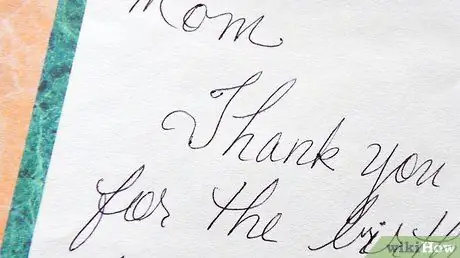 Mom
Thank you
for the
wikiHow